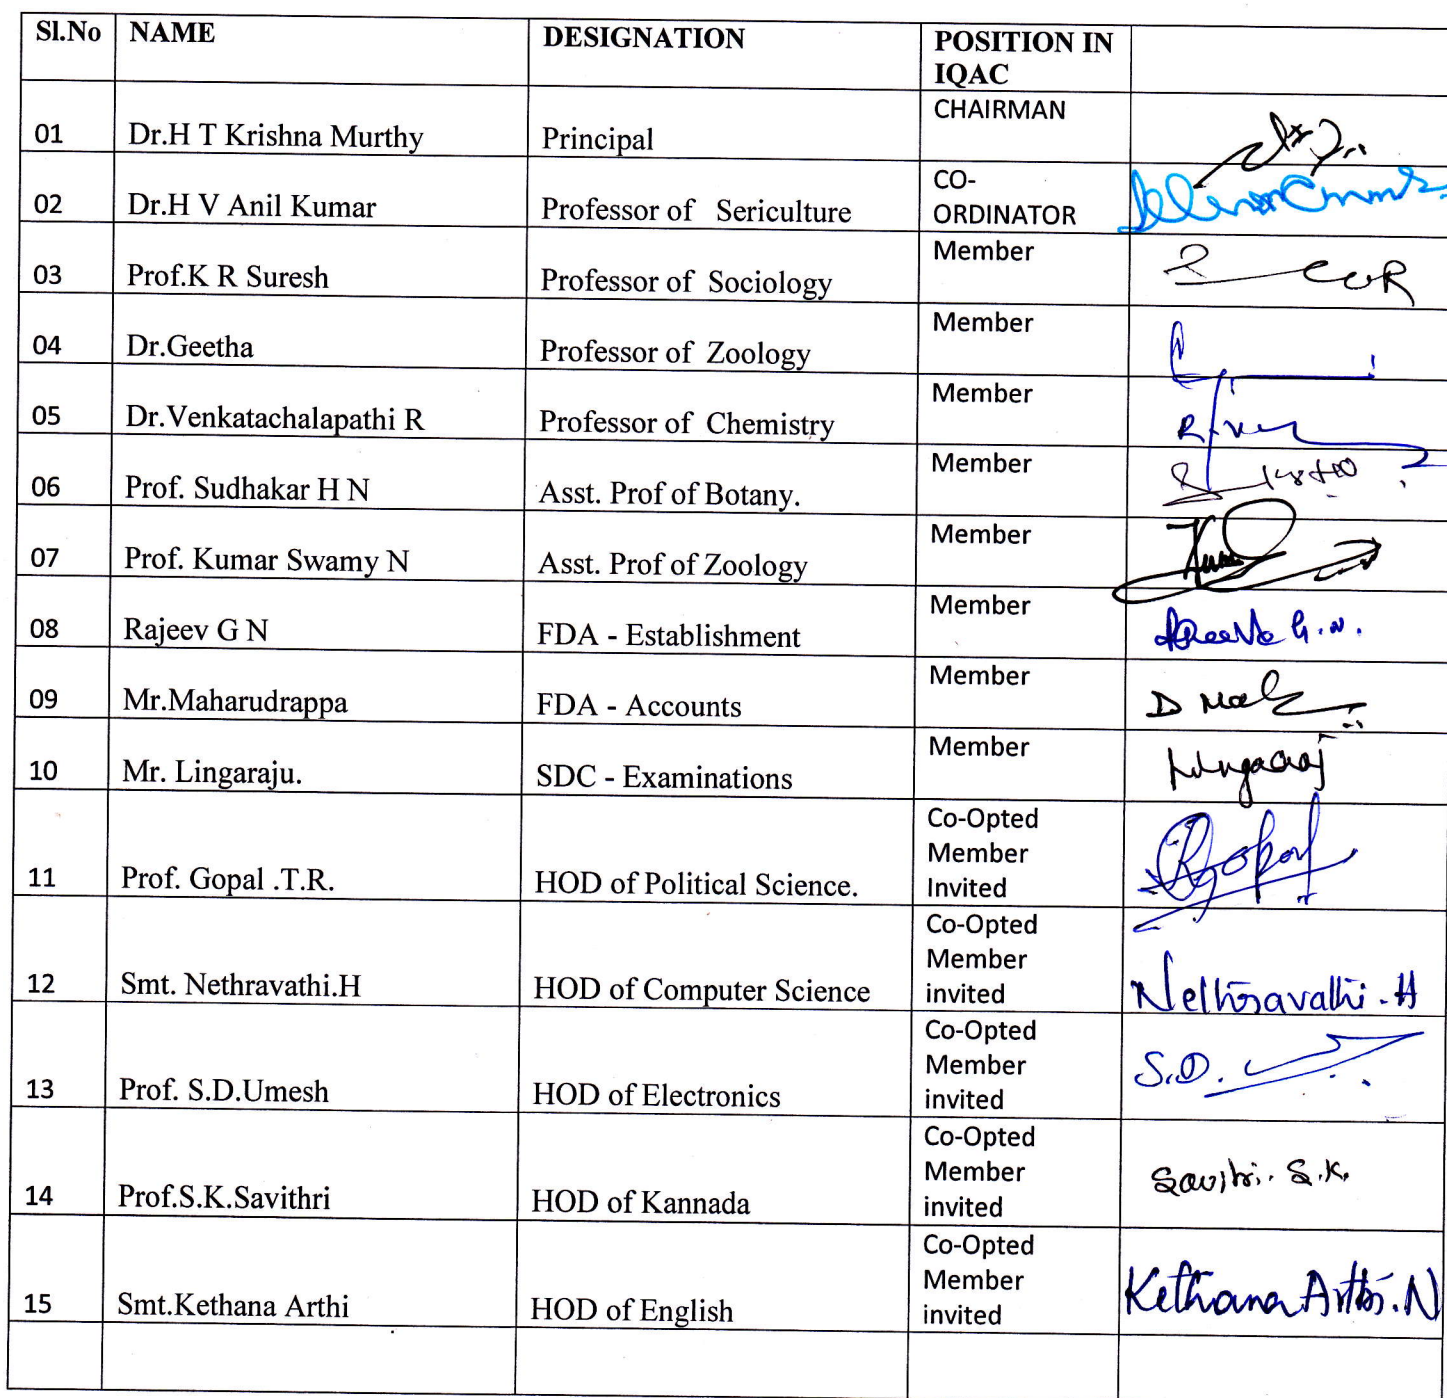 Sl.No NAME DESIGNATION POSITION IN
IQAC
01 Dr.H T Krishna Murthy Principal CHAIRMAN
02 Dr.H V Anil Kumar Professor of Sericulture CO-
ORDINATOR
03 Prof.K R Suresh Professor of Sociology Member
04 Dr.Geetha Professor of Zoology Member
05 Dr.Venkatachalapathi R Professor of Chemistry Member
06 Prof. Sudhakar H N Asst. Prof of Botany. Member
07 Prof. Kumar Swamy N Asst. Prof of Zoology Member
08 Rajeev G N FDA - Establishment Member G.N.
09 Mr.Maharudrappa FDA - Accounts Member D
10 Mr. Lingaraju. SDC - Examinations Member Lingaraj
11 Prof. Gopal .T.R. HOD of Political Science. Co-Opted
Member
Invited Gopal
12 Smt. Nethravathi.H HOD of Computer Science Co-Opted
Member
invited Nethravathi.H
13 Prof. S.D.Umesh HOD of Electronics Co-Opted
Member
invited S.D.
14 Prof.S.K.Savithri HOD of Kannada Co-Opted
Member
invited Savithri. S.K.
15 Smt.Kethana Arthi HOD of English Co-Opted
Member
invited Kethana Arthi.N